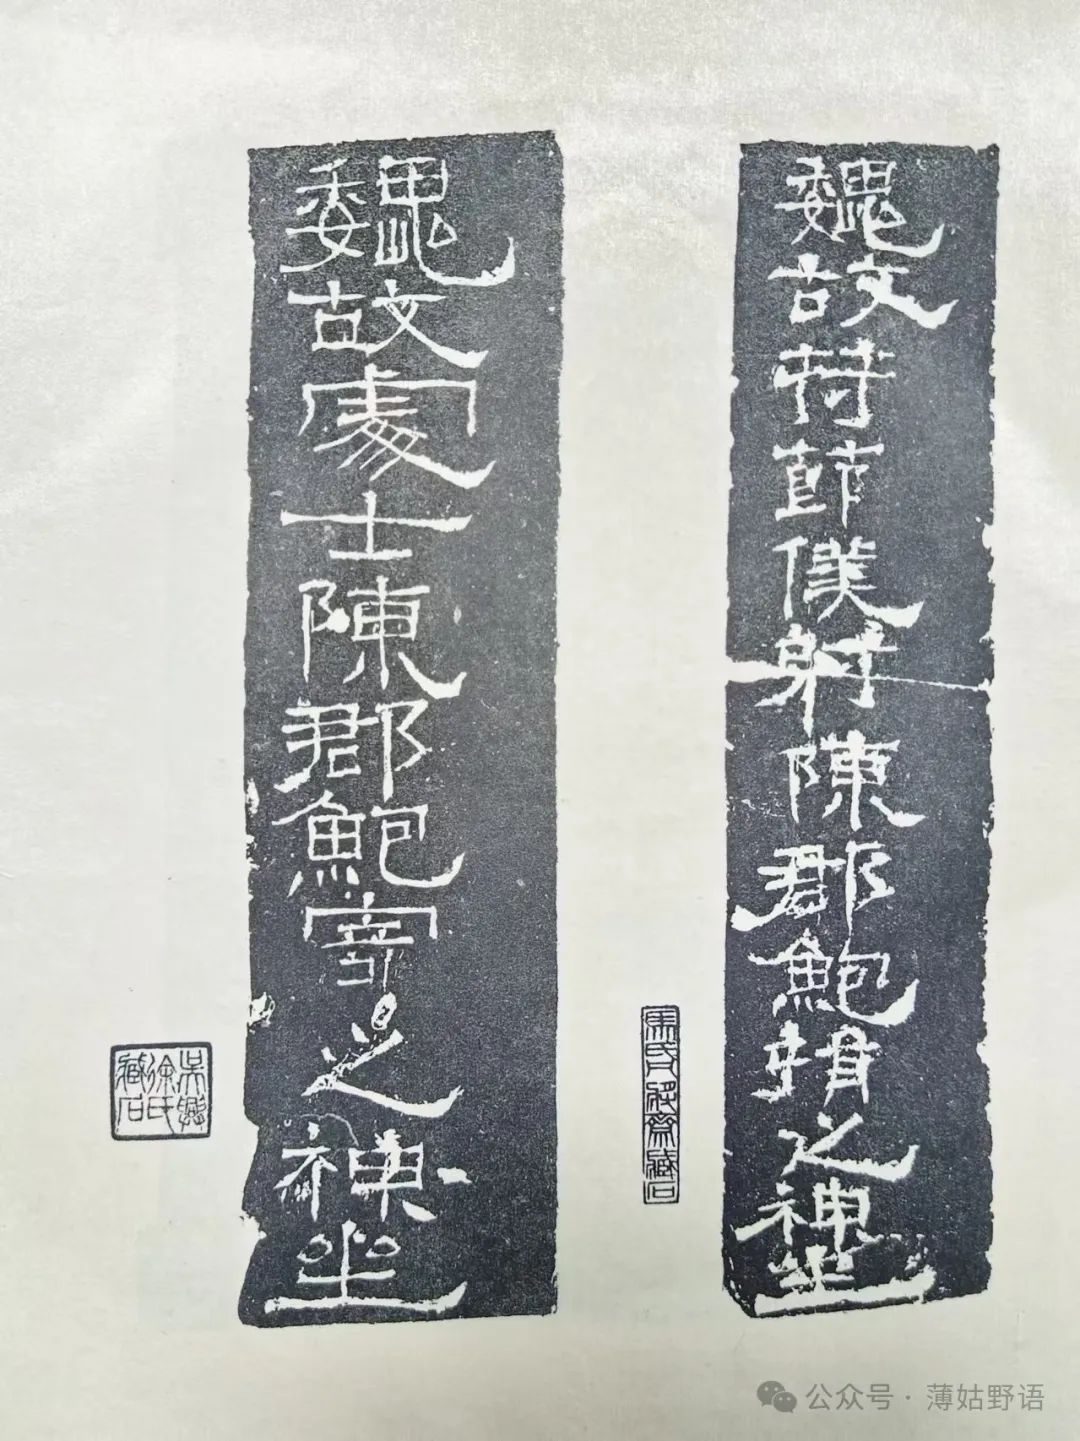 魏故持節僕射陳郡鮑捐之神坐
馬氏凡將齋藏石
魏故處士陳郡鮑寄之神坐
吳興
徐氏
藏石
公众号·薄姑野语